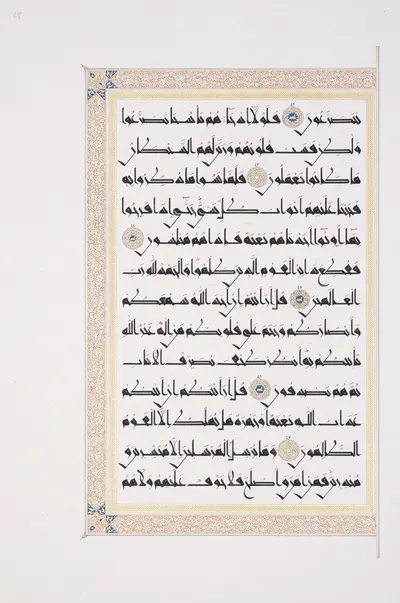 يتضرعون فلولا إذ جاءهم بأسنا تضرعوا
ولكن قست قلوبهم وزين لهم الشيطان
ما كانوا يعملون فلما نسوا ما ذكروا به
فتحنا عليهم أبواب كل شيء حتى إذا فرحوا
بما أوتوا أخذناهم بغتة فإذا هم مبلسون
فقطع دابر القوم الذين ظلموا والحمد لله رب
العالمين قل أرأيتم إن أخذ الله سمعكم
وأبصاركم وختم على قلوبكم من إله غير الله
يأتيكم به انظر كيف نصرف الآيات
ثم هم يصدفون قل أرأيتكم إن أتاكم
عذاب الله بغتة أو جهرة هل يهلك إلا القوم
الظالمون وما نرسل المرسلين إلا مبشرين و
منذرين فمن آمن وأصلح فلا خوف عليهم ولا هم